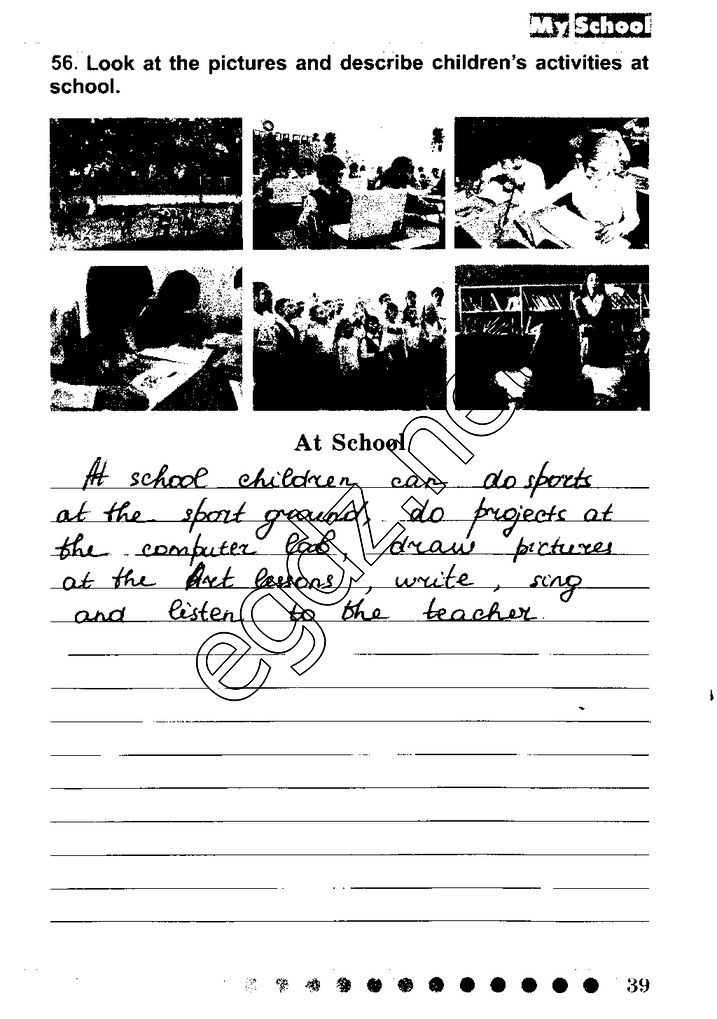 My School
56. Look at the pictures and describe children's activities at
school.
At School
At school children can do sports
at the sport ground, do projects at
the computer lab, draw pictures
at the Art lessons, write, sing
and listen to the teacher
egdz.ne
39